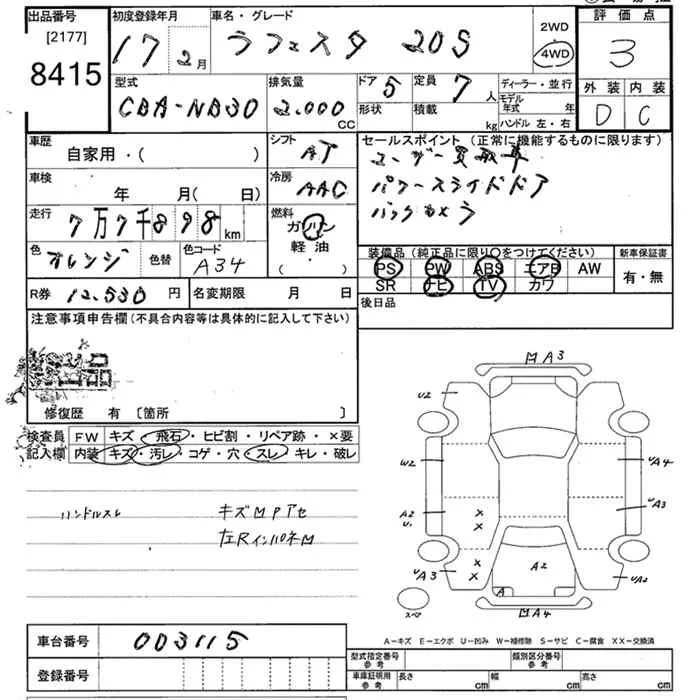 出品番号
[2177]
8415
初度登録年月
17年2月
車名・グレード
ラフェスタ 20S
2WD
4WD
評価点
3
外装 内装
D C
型式
CBA-NB30
排気量
2.000
CC
ドア 5
形状
定員 7人
積載 kg
ディーラー・並行
モデル年式 年
ハンドル 左・右
車歴
自家用・( )
シフト
AT
セールスポイント (正常に機能するものに限ります)
ユーザー買取車
パワースライドドア
バックカメラ
車検
年 月( 日)
冷房
AAC
走行
7万7千898km
燃料
ガソリン
軽油
( )
色
オレンジ
色替
色コード
A34
装備品 (純正品に限り○をつけてください)
PS PW ABS エアB AW
SR ナビ TV カワ
新車保証書
有・無
R券 12.530円
名変期限 月 日
後日品
注意事項申告欄(不具合内容等は具体的に記入して下さい)
修復歴 有 〔箇所 〕
検査員
記入欄
FW キズ・飛石・ヒビ割・リペア跡・×要
内装 キズ・汚レ・コゲ・穴・スレ・キレ・破レ
ハンドルスレ
キズMPアセ
左RインパネM
MA3
U2
W2
UA4
A2
U.
UA3
×
×
UA3
×
×
A2
A
UA2
スペア
MA4
A-キズ E-エクボ U-凹み W-補修跡 S-サビ C-腐食 XX-交換済
車台番号 003115
登録番号
型式指定番号
参考
類別区分番号
参考
車庫証明用
参考
長さ cm
幅 cm
高さ cm